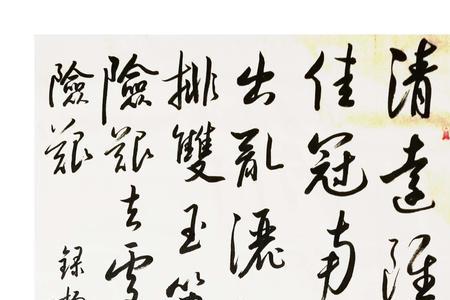 清遠
佳冠南
出亂灑
排雙玉
險艱去雲
險艱 錄